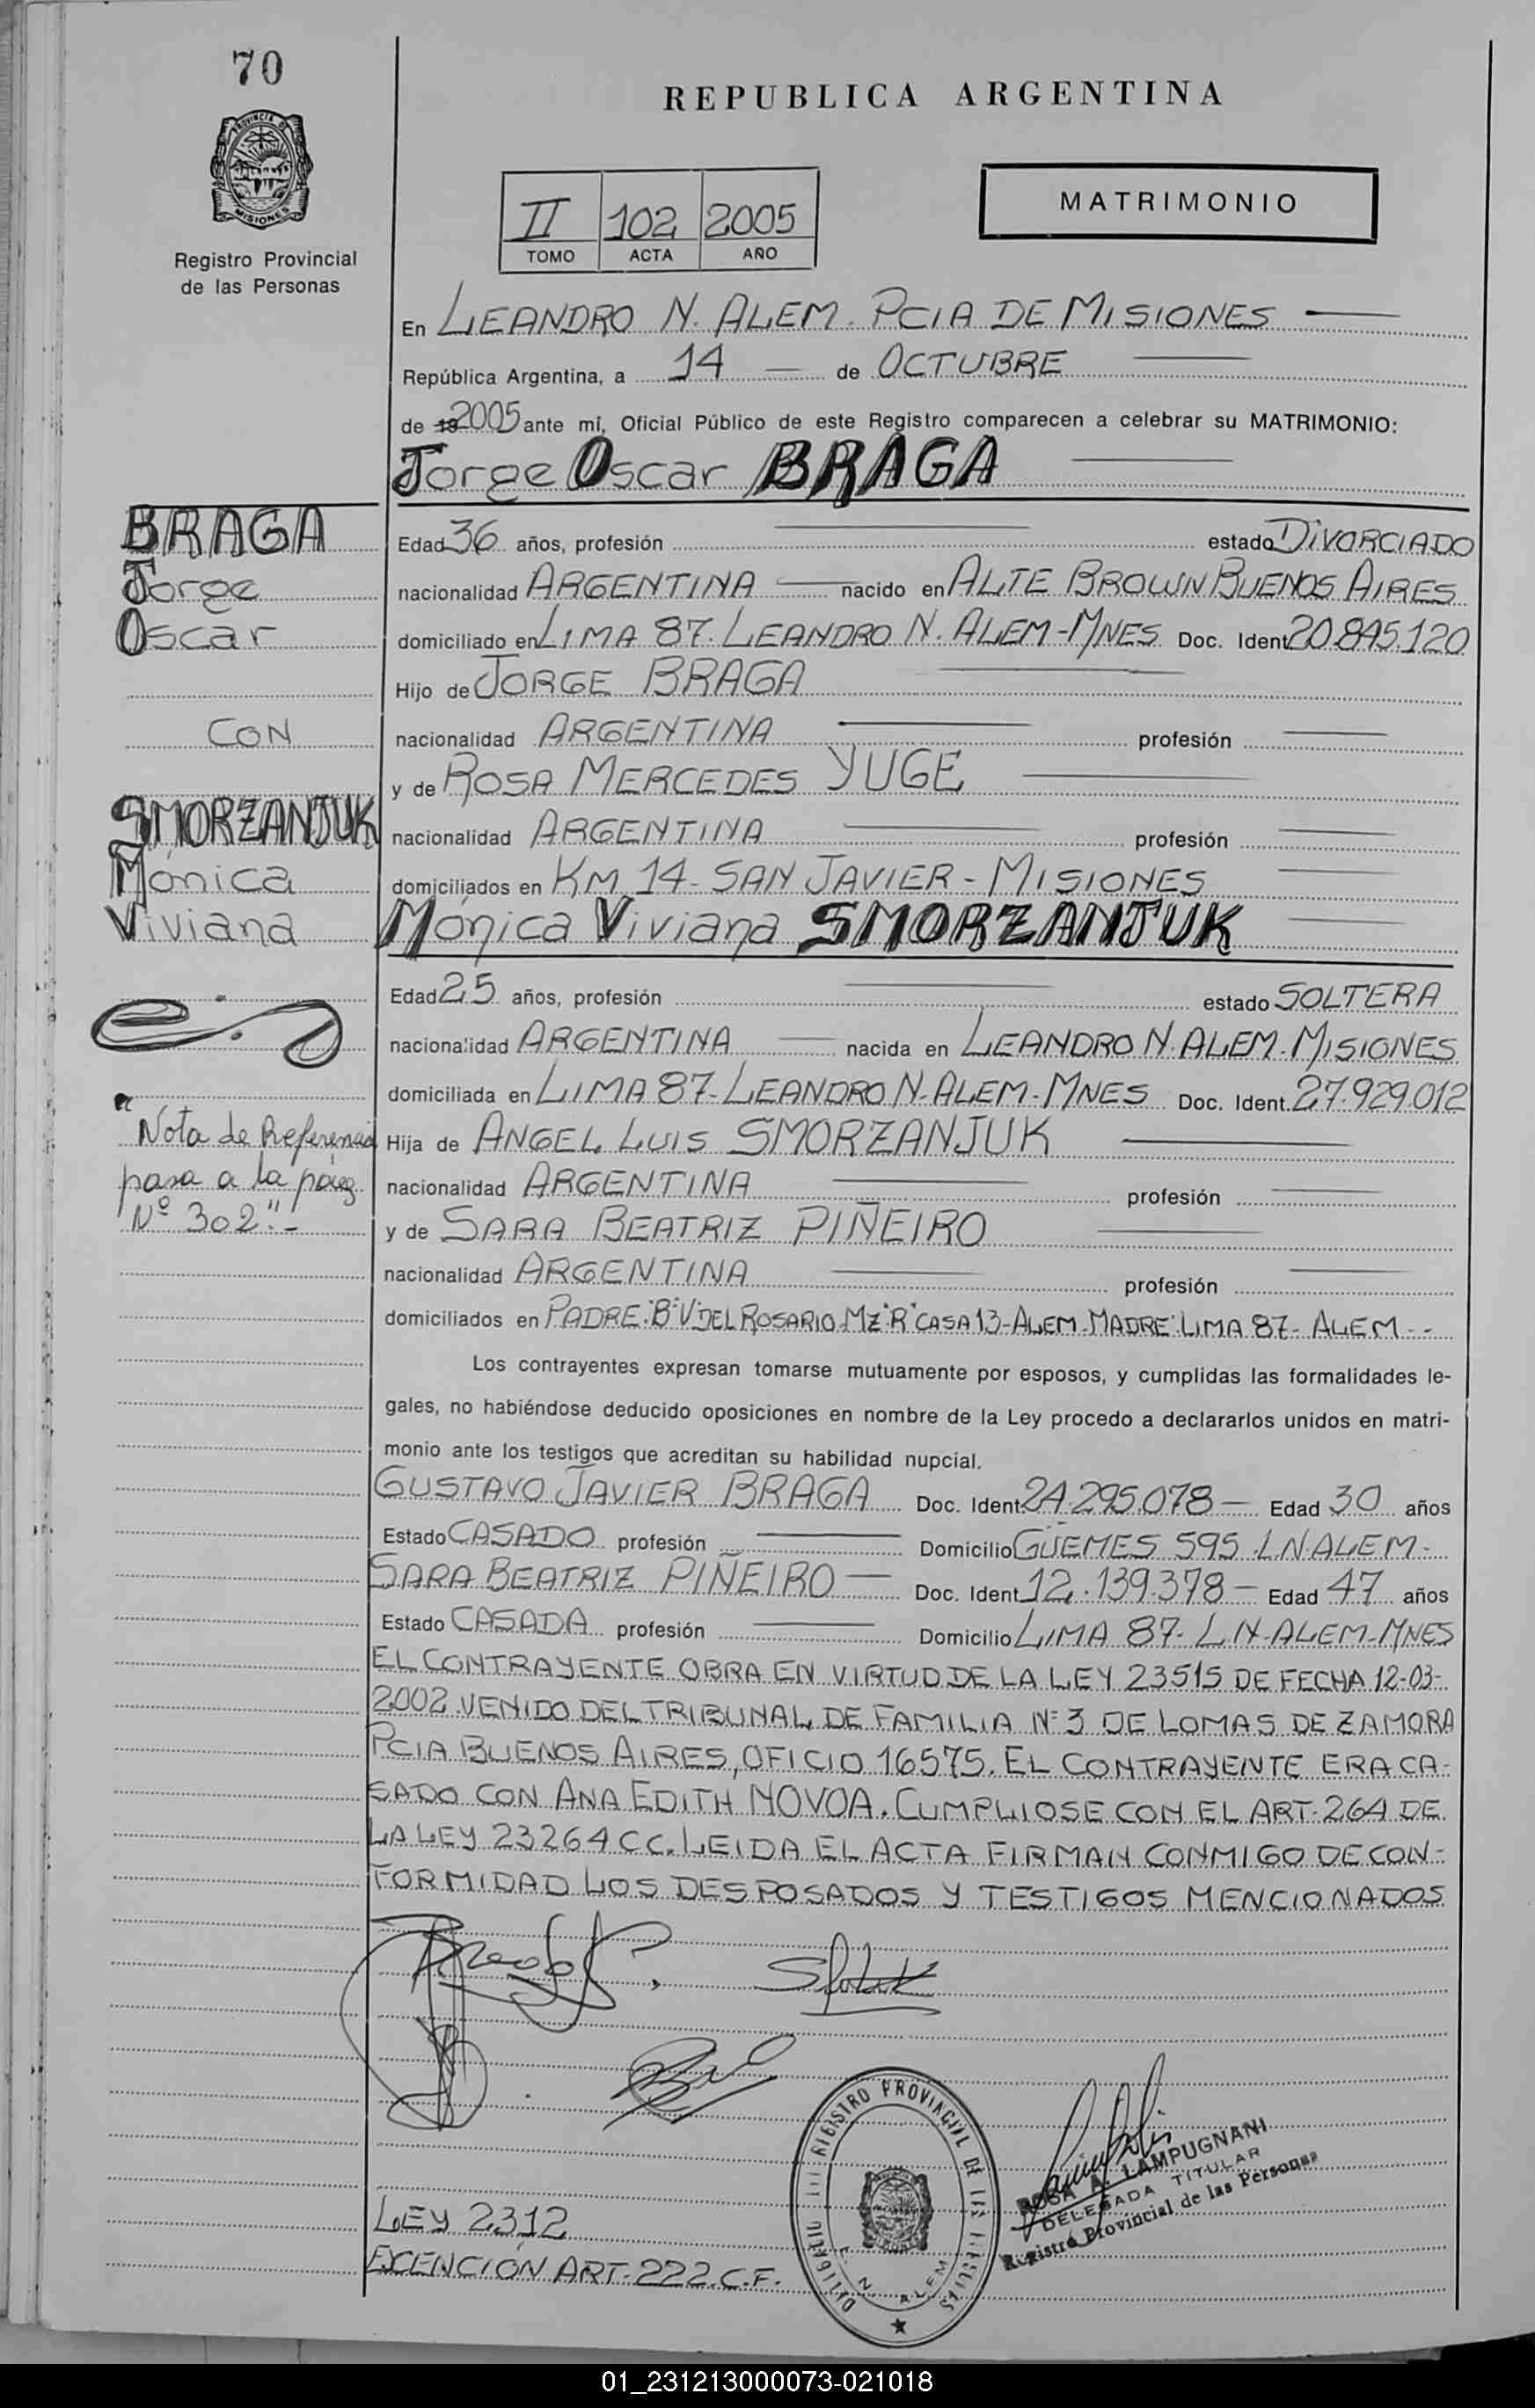 70
REPUBLICA ARGENTINA
PROVINCIA DE
MISIONES
Registro Provincial
de las Personas
II 102 2005
TOMO ACTA AÑO
MATRIMONIO
En LEANDRO N. ALEM. PCIA DE MISIONES
República Argentina, a 14 de OCTUBRE
de 19 2005 ante mí, Oficial Público de este Registro comparecen a celebrar su MATRIMONIO:
Jorge Oscar BRAGA
BRAGA
Jorge
Oscar
CON
SMORZANJUK
Mónica
Viviana
Edad 36 años, profesión estado DIVORCIADO
nacionalidad ARGENTINA nacido en ALTE BROWN BUENOS AIRES
domiciliado en LIMA 87. LEANDRO N. ALEM-MNES Doc. Ident 20.845.120
Hijo de JORGE BRAGA
nacionalidad ARGENTINA profesión
y de ROSA MERCEDES YUGE
nacionalidad ARGENTINA profesión
domiciliados en KM 14-SAN JAVIER-MISIONES
Mónica Viviana SMORZANJUK
Edad 25 años, profesión estado SOLTERA
nacionalidad ARGENTINA nacida en LEANDRO N. ALEM. MISIONES
domiciliada en LIMA 87-LEANDRO N-ALEM-MNES Doc. Ident. 27.929.012
Hija de ANGEL LUIS SMORZANJUK
nacionalidad ARGENTINA profesión
y de SARA BEATRIZ PIÑEIRO
nacionalidad ARGENTINA profesión
domiciliados en PADRE:B°V°DEL ROSARIO-MZ"R"CASA 13-ALEM-MADRE:LIMA 87- ALEM--
"Nota de Referencia
pasa a la pág.
Nº 302".-
Los contrayentes expresan tomarse mutuamente por esposos, y cumplidas las formalidades le-
gales, no habiéndose deducido oposiciones en nombre de la Ley procedo a declararlos unidos en matri-
monio ante los testigos que acreditan su habilidad nupcial.
GUSTAVO JAVIER BRAGA Doc. Ident. 24.295.078- Edad 30 años
Estado CASADO profesión Domicilio GÜEMES 595.LN.ALEM-
SARA BEATRIZ PIÑEIRO- Doc. Ident 12.139.378- Edad 47 años
Estado CASADA profesión Domicilio LIMA 87- L.N-ALEM-MNES
EL CONTRAYENTE OBRA EN VIRTUD DE LA LEY 23515 DE FECHA 12-03-
2002.VENIDO DEL TRIBUNAL DE FAMILIA Nº 3 DE LOMAS DE ZAMORA
PCIA BUENOS AIRES, OFICIO 16575. EL CONTRAYENTE ERA CA-
SADO CON ANA EDITH NOVOA. CUMPLIOSE CON EL ART-264 DE
LA LEY 23264 CC. LEIDA EL ACTA FIRMAN CONMIGO DE CON-
FORMIDAD LOS DESPOSADOS Y TESTIGOS MENCIONADOS
REGISTRO PROVINCIAL DE LAS
ALEM
ROSA A. LAMPUGNANI
DELEGADA TITULAR
Registro Provincial de las Personas
LEY 2312
EXCENCIÓN ART-222.C.F.
01_231213000073-021018